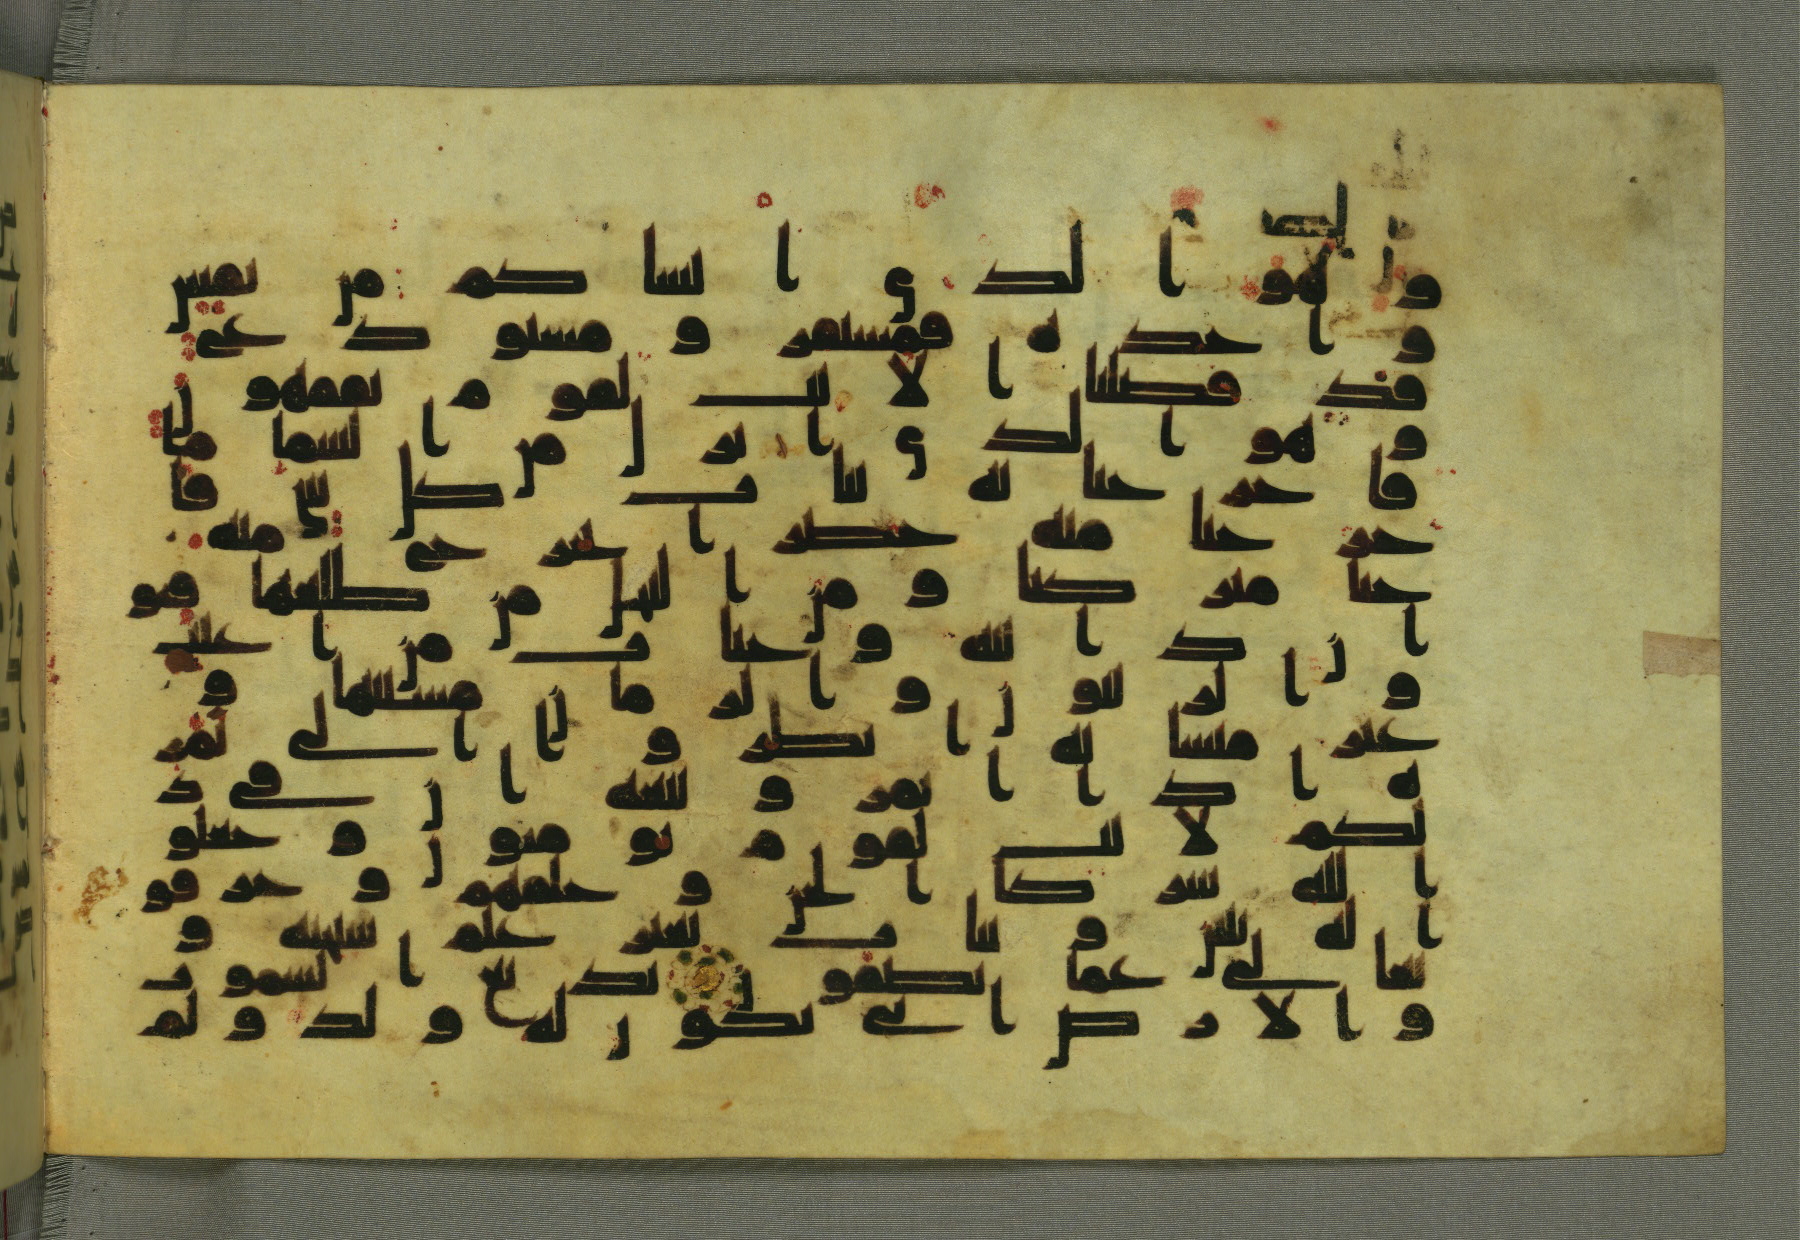 و هو الذي انشاكم من نفس
و احدة فمستقر و مستودع
قد فصلنا الايت لقوم يفقهون
و هو الذي انزل من السما ما
فاخرجنا به نبات كل شي فا
خرجنا منه خضرا نخرج منه
حبا متراكبا و من النخل من طلعها قنو
ان دانية و جنت من اعنب
و الزيتون و الرمان مشتبها و
غير متشبه انظروا الى ثمر
ه اذا اثمر و ينعه ان في ذ
لكم لايت لقوم يومنون و جعلو
ا لله شركا الجن و خلقهم و خرقو
ا له بنين و بنت بغير علم سبحنه و
تعلى عما يصفون بديع السموت
و الارض انى يكون له و لد و لم